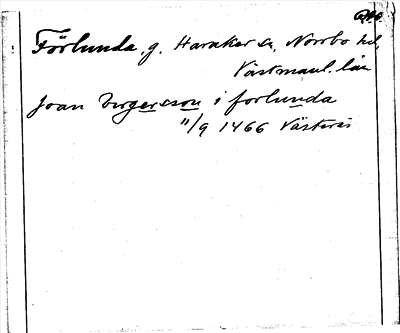 Förlunda, g. Haraker sn, Norrbo hd,
Västmanl. län
Joan birgersson i forlunda
11/9 1466 Västerås